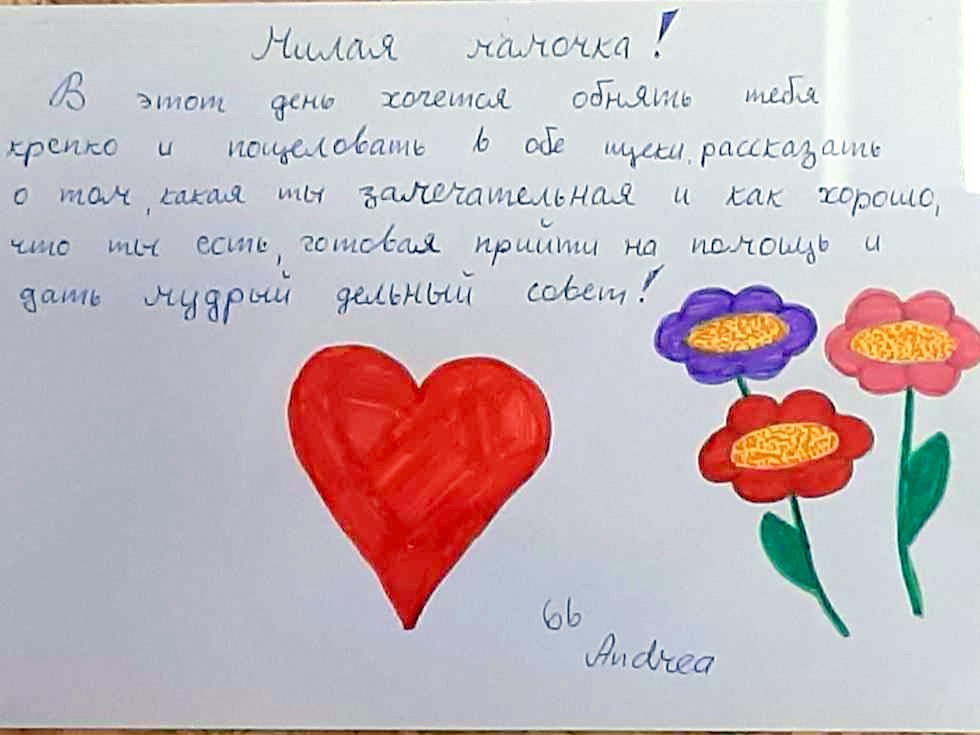 Милая мамочка!
В этот день хочется обнять тебя
крепко и поцеловать в обе щеки, рассказать
о том, какая ты замечательная и как хорошо,
что ты есть, готовая прийти на помощь и
дать мудрый дельный совет!
6b
Andrea